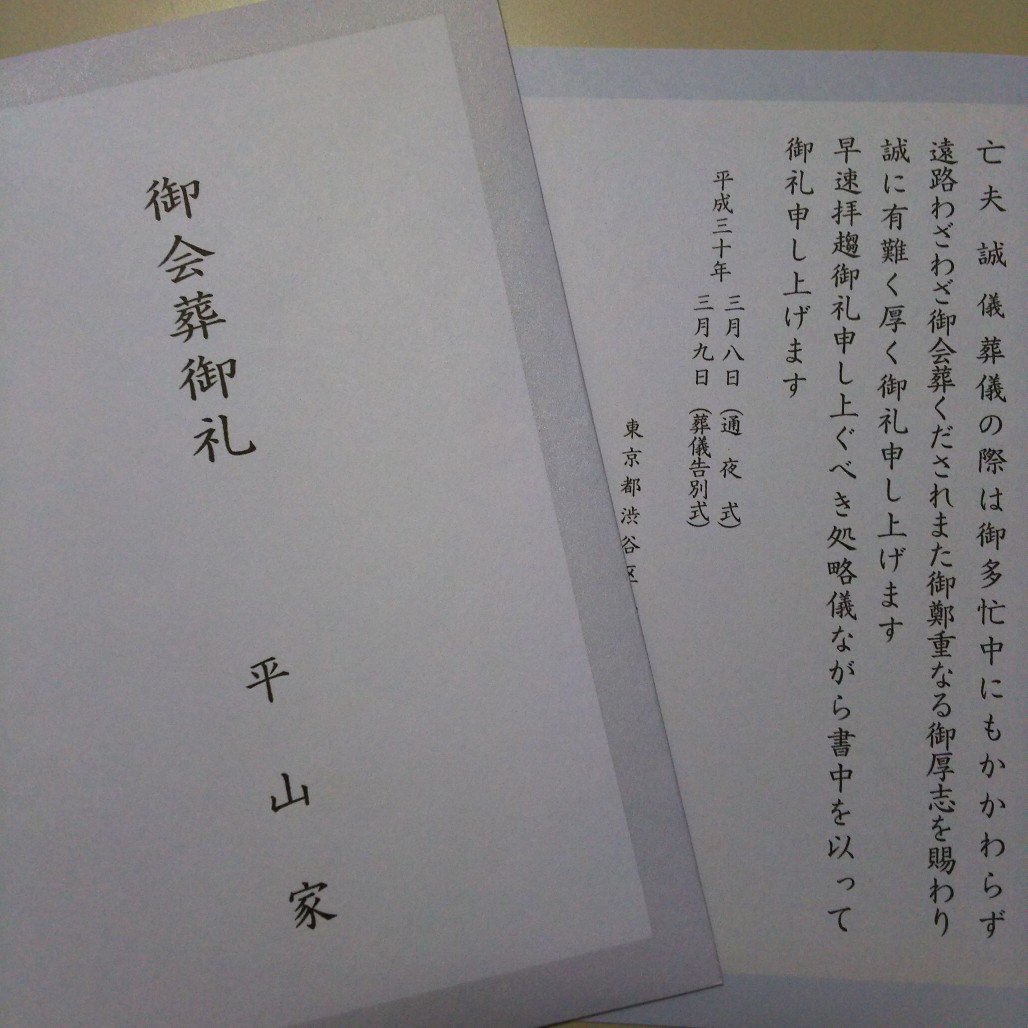 御会葬御礼
平山家
亡夫誠儀葬儀の際は御多忙中にもかかわらず
遠路わざわざ御会葬くだされまた御鄭重なる御厚志を賜わり
誠に有難く厚く御礼申し上げます
早速拝趨御礼申し上ぐべき処略儀ながら書中を以って
御礼申し上げます
平成三十年
三月八日(通夜式)
三月九日(葬儀告別式)
東京都渋谷区